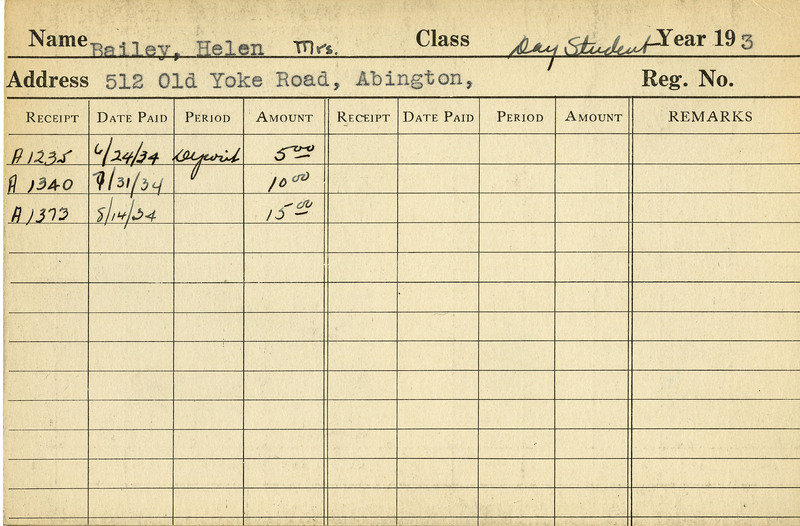 Name Bailey, Helen Mrs. Class Day Student Year 193
Address 512 Old Yoke Road, Abington, Reg. No.
RECEIPT DATE PAID PERIOD AMOUNT RECEIPT DATE PAID PERIOD AMOUNT REMARKS
A 1235 6/24/34 Deposit 5.00
A 1340 7/31/34 10.00
A 1373 8/14/34 15.00